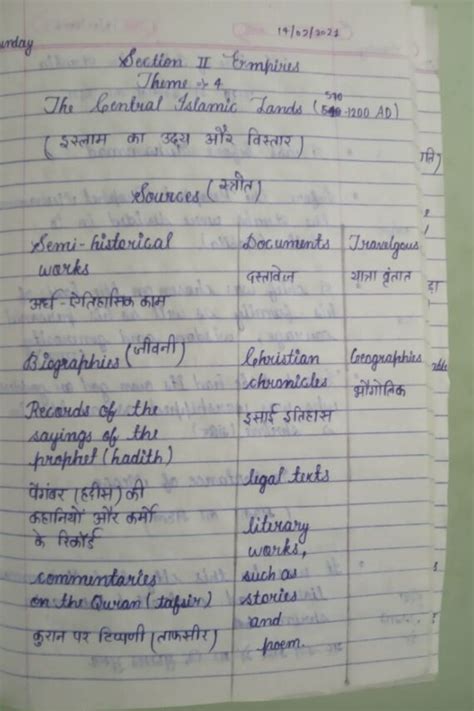 14/02/2021
unday
Section II Empires
Theme → 4
The Central Islamic Lands (570 -1200 AD)
( इस्लाम का उदय और विस्तार )
Sources ( स्त्रोत )
Semi-historical works
अर्ध-ऐतिहासिक काम
Biographies (जीवनी)
Records of the
sayings of the
prophet (hadith)
पैगंबर (हदीस) की
कहानियों और कर्मो
के रिकॉर्ड
commentaries
on the Quran (tafsir)
कुरान पर टिप्पणी (ताफसीर)
Documents
दस्तावेज
Christian
chronicles
इसाई इतिहास
legal texts
literary
works,
such as
stories
and
poem.
Travalgous
यात्रा वृंतात
Geographies
भौगोतिक